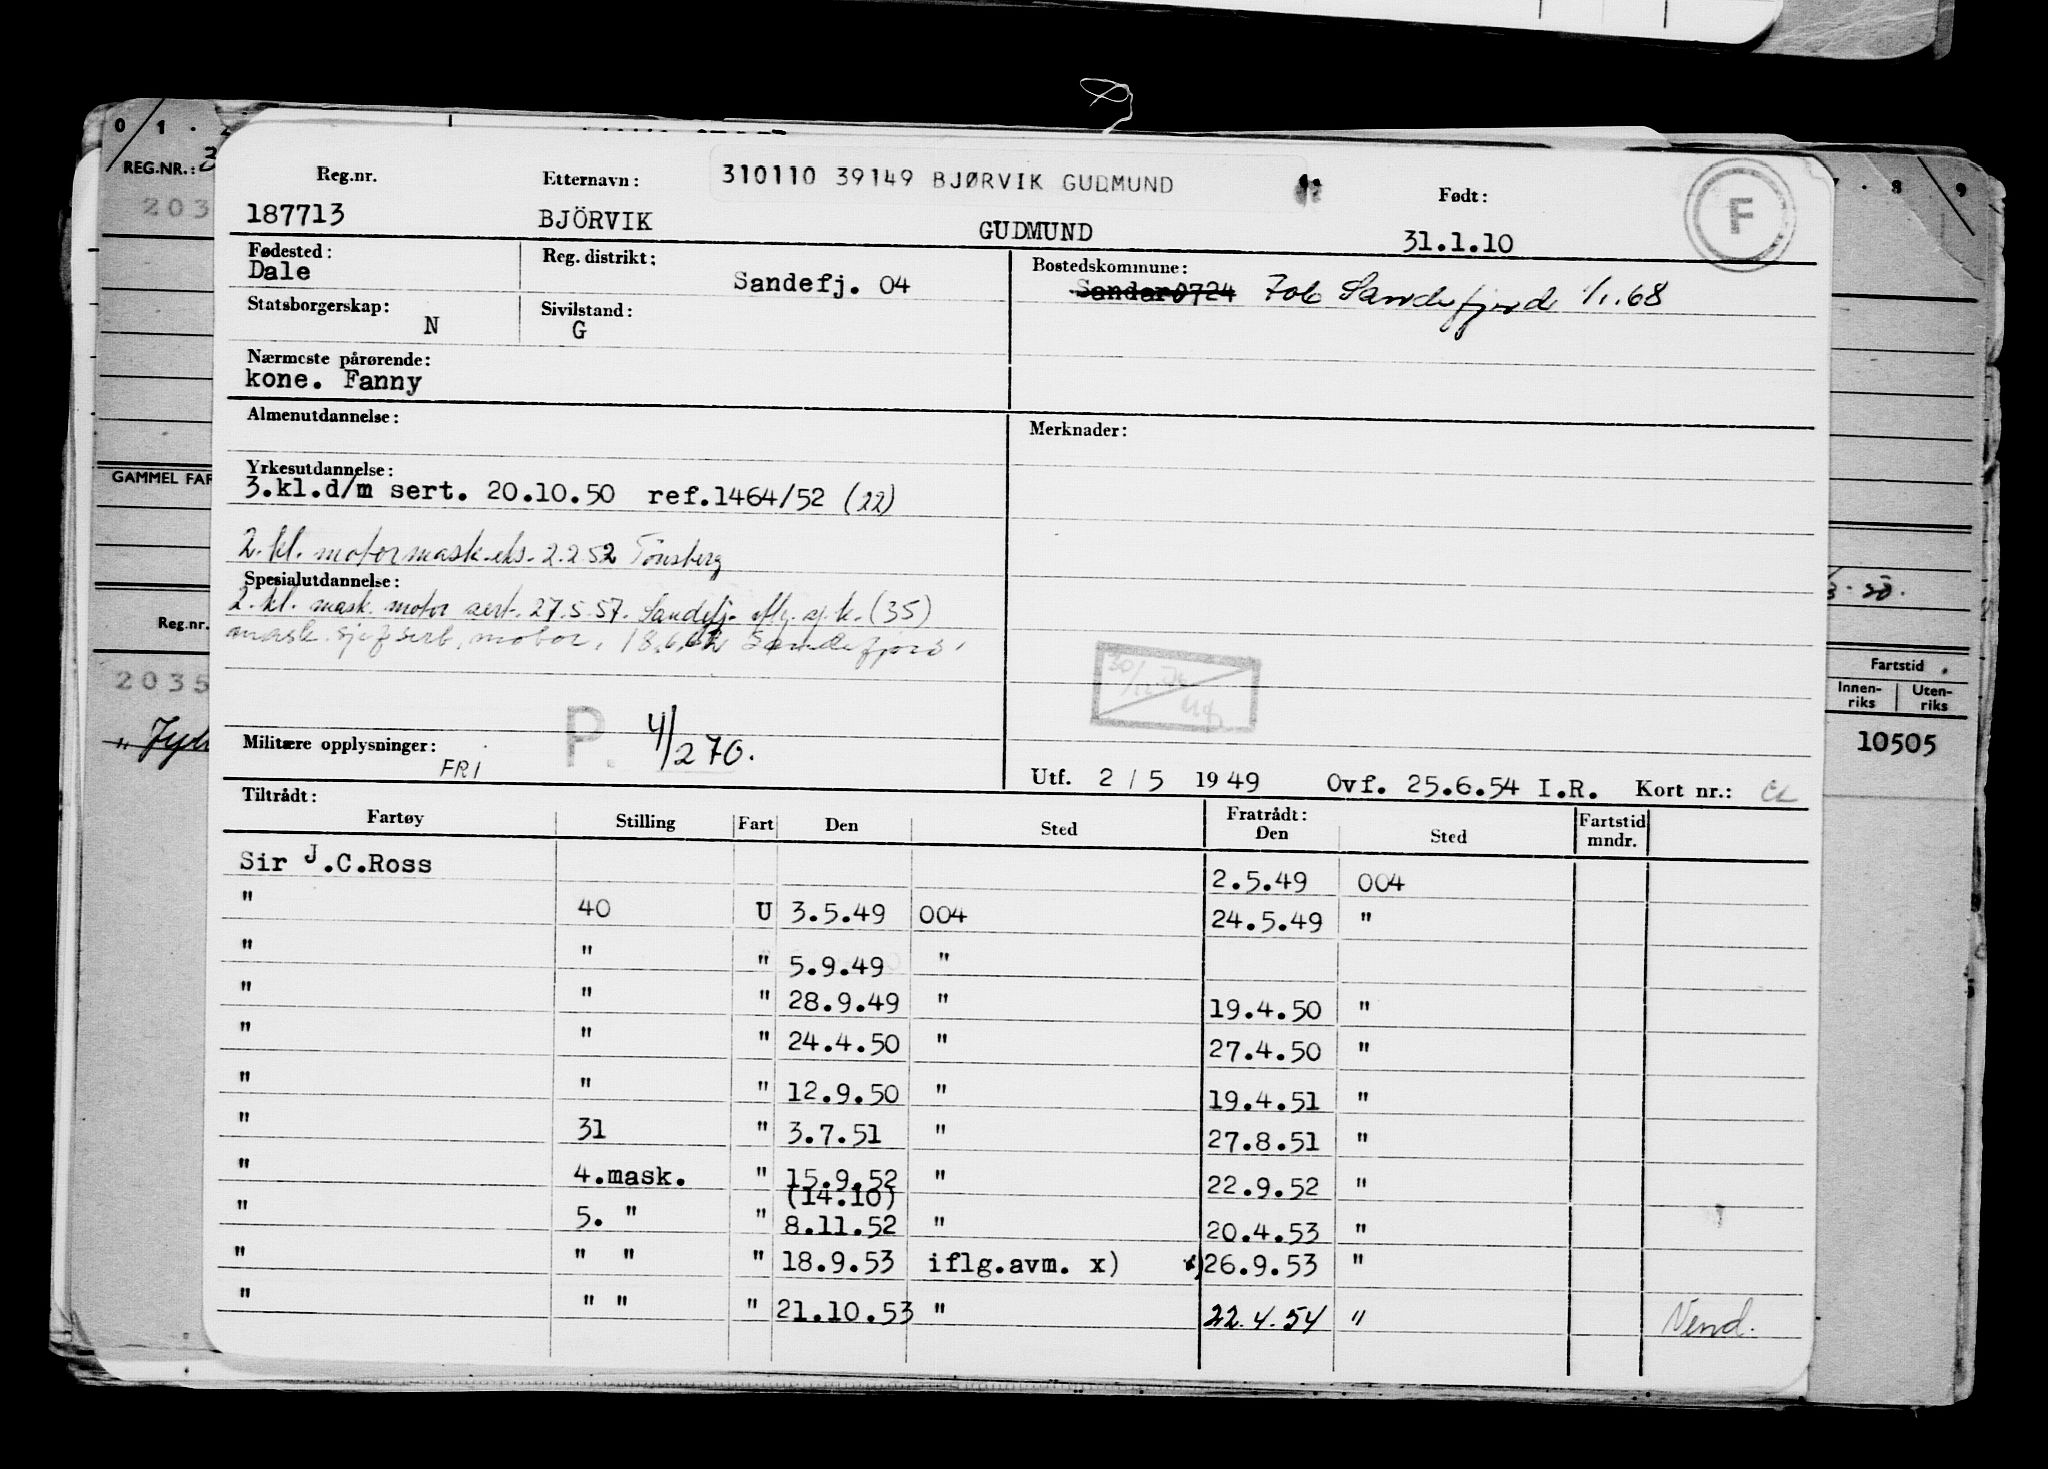 0 1 . 2
REG.NR.: 3
203
GAMMEL FAR
Reg.nr.
2035
8 . 9
Fartstid
Innen-riks Uten-riks
10505
Reg.nr. Etternavn: 310110 39149 BJØRVIK GUDMUND Født:
187713 BJÖRVIK GUDMUND 31.1.10 F
Fødested: Reg. distrikt: Bostedskommune:
Dale Sandefj. 04 Sandar 0724 706 Sandefjord 1/1.68
Statsborgerskap: N Sivilstand: G
Nærmeste pårørende:
kone. Fanny
Almenutdannelse: Merknader:
Yrkesutdannelse:
3.kl.d/m sert. 20.10.50 ref.1464/52 (22)
2. kl. motormask.eks. 2.2.52 Tönsberg
Spesialutdannelse:
2. kl. mask. motor sert. 27.5.57. Sandefj. (35)
mask. sjefsert. motor, 18.6.62 Sandefjord
30/12
P. 4/270.
Militære opplysninger: FRI
Utf. 2 / 5 1949 Ovf. 25.6.54 I.R. Kort nr.:
Tiltrådt: Fratrådt:
Fartøy Stilling Fart Den Sted Den Sted Fartstid mndr.
Sir J.C.Ross 2.5.49 004
" 40 U 3.5.49 004 24.5.49 "
" " " 5.9.49 "
" " " 28.9.49 " 19.4.50 "
" " " 24.4.50 " 27.4.50 "
" " " 12.9.50 " 19.4.51 "
" 31 " 3.7.51 " 27.8.51 "
" 4.mask. " 15.9.52 " 22.9.52 "
(14.10)
" 5. " " 8.11.52 " 20.4.53 "
" " " " 18.9.53 iflg.avm. x) x) 26.9.53 "
" " " " 21.10.53 " 22.4.54 " Vend.